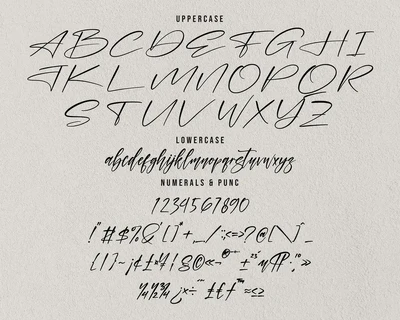 UPPERCASE
ABCDEFGHI
JKLMNOPQR
STUVWXYZ
LOWERCASE
abcdefghijklmnopqrstuvwxyz
NUMERALS & PUNC
1234567890
!"#$%&'()*+,-./:;<=>?@[\]^_
{|}~¡¢£¤¥¦§©«¬®¯°±²³´µ¶·¸¹º»
¼½¾¿×÷